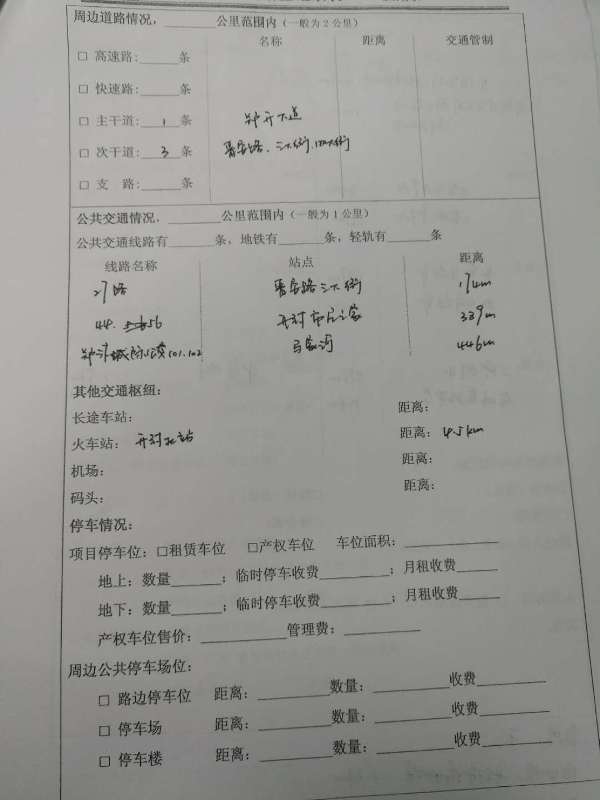 周边道路情况，______公里范围内（一般为2公里）
名称 距离 交通管制
□ 高速路：______条
□ 快速路：______条
□ 主干道：1条 郑开大道
□ 次干道：3条 晋安路、三大街、四大街
□ 支 路：______条
公共交通情况，______公里范围内（一般为1公里）
公共交通线路有______条，地铁有______条，轻轨有______条
线路名称 站点 距离
27路 晋安路三大街 174m
44. 56 开封市 339m
郑汴城际公交101.102 马家河 446m
其他交通枢纽：
长途车站： 距离：
火车站：开封北站 距离：4.5km
机场： 距离：
码头： 距离：
停车情况：
项目停车位：□租赁车位 □产权车位 车位面积：______
地上：数量______；临时停车收费______；月租收费______
地下：数量______；临时停车收费______；月租收费______
产权车位售价：______管理费：______
周边公共停车场位：
□ 路边停车位 距离：______数量：______收费______
□ 停车场 距离：______数量：______收费______
□ 停车楼 距离：______数量：______收费______